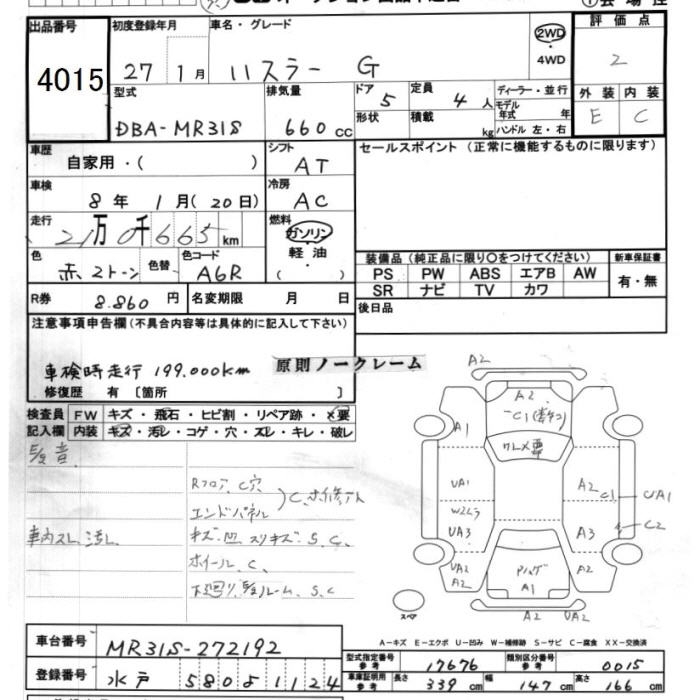 出品番号 4015
初度登録年月 27 1月
車名・グレード ハスラー G
2WD
4WD
評価点 2
外装 内装
E C
型式 DBA-MR31S
排気量 660 cc
ドア 5
形状
定員 4 人
積載 kg
ディーラー・並行
モデル年式 年
ハンドル 左・右
車歴 自家用・( )
シフト AT
セールスポイント (正常に機能するものに限ります)
車検 8年 1月(20日)
冷房 AC
走行 21万0千665 km
燃料 ガソリン
軽油
( )
色 赤2トーン 色替 色コード A6R
装備品 (純正品に限り〇をつけてください) 新車保証書
PS PW ABS エアB AW 有・無
SR ナビ TV カワ
R券 8.860 円 名変期限 月 日
後日品
注意事項申告欄 (不具合内容等は具体的に記入して下さい)
車検時走行 199.000km
原則ノークレーム
修復歴 有 〔箇所 〕
検査員 FW キズ・飛石・ヒビ割・リペア跡・×要
記入欄 内装 キズ・汚レ・コゲ・穴・スレ・キレ・破レ
Rフロア、C穴
エンドパネル
車内スレ、汚レ
キズ、凹、スリキズ、S、C、
ホイール、C、
A2
A2
A1
UA1
A2
C1
UA1
UA3
A3
C2
UA2
A2
A2
A1
A2
UA2
スペア
A-キズ E-エクボ U-凹み W-補修跡 S-サビ C-腐食 XX-交換済
車台番号 MR31S-272192
型式指定番号 参考 17676 類別区分番号 参考 0015
登録番号 水戸 580 う 1124
車庫証明用 参考 長さ 339 cm 幅 147 cm 高さ 166 cm